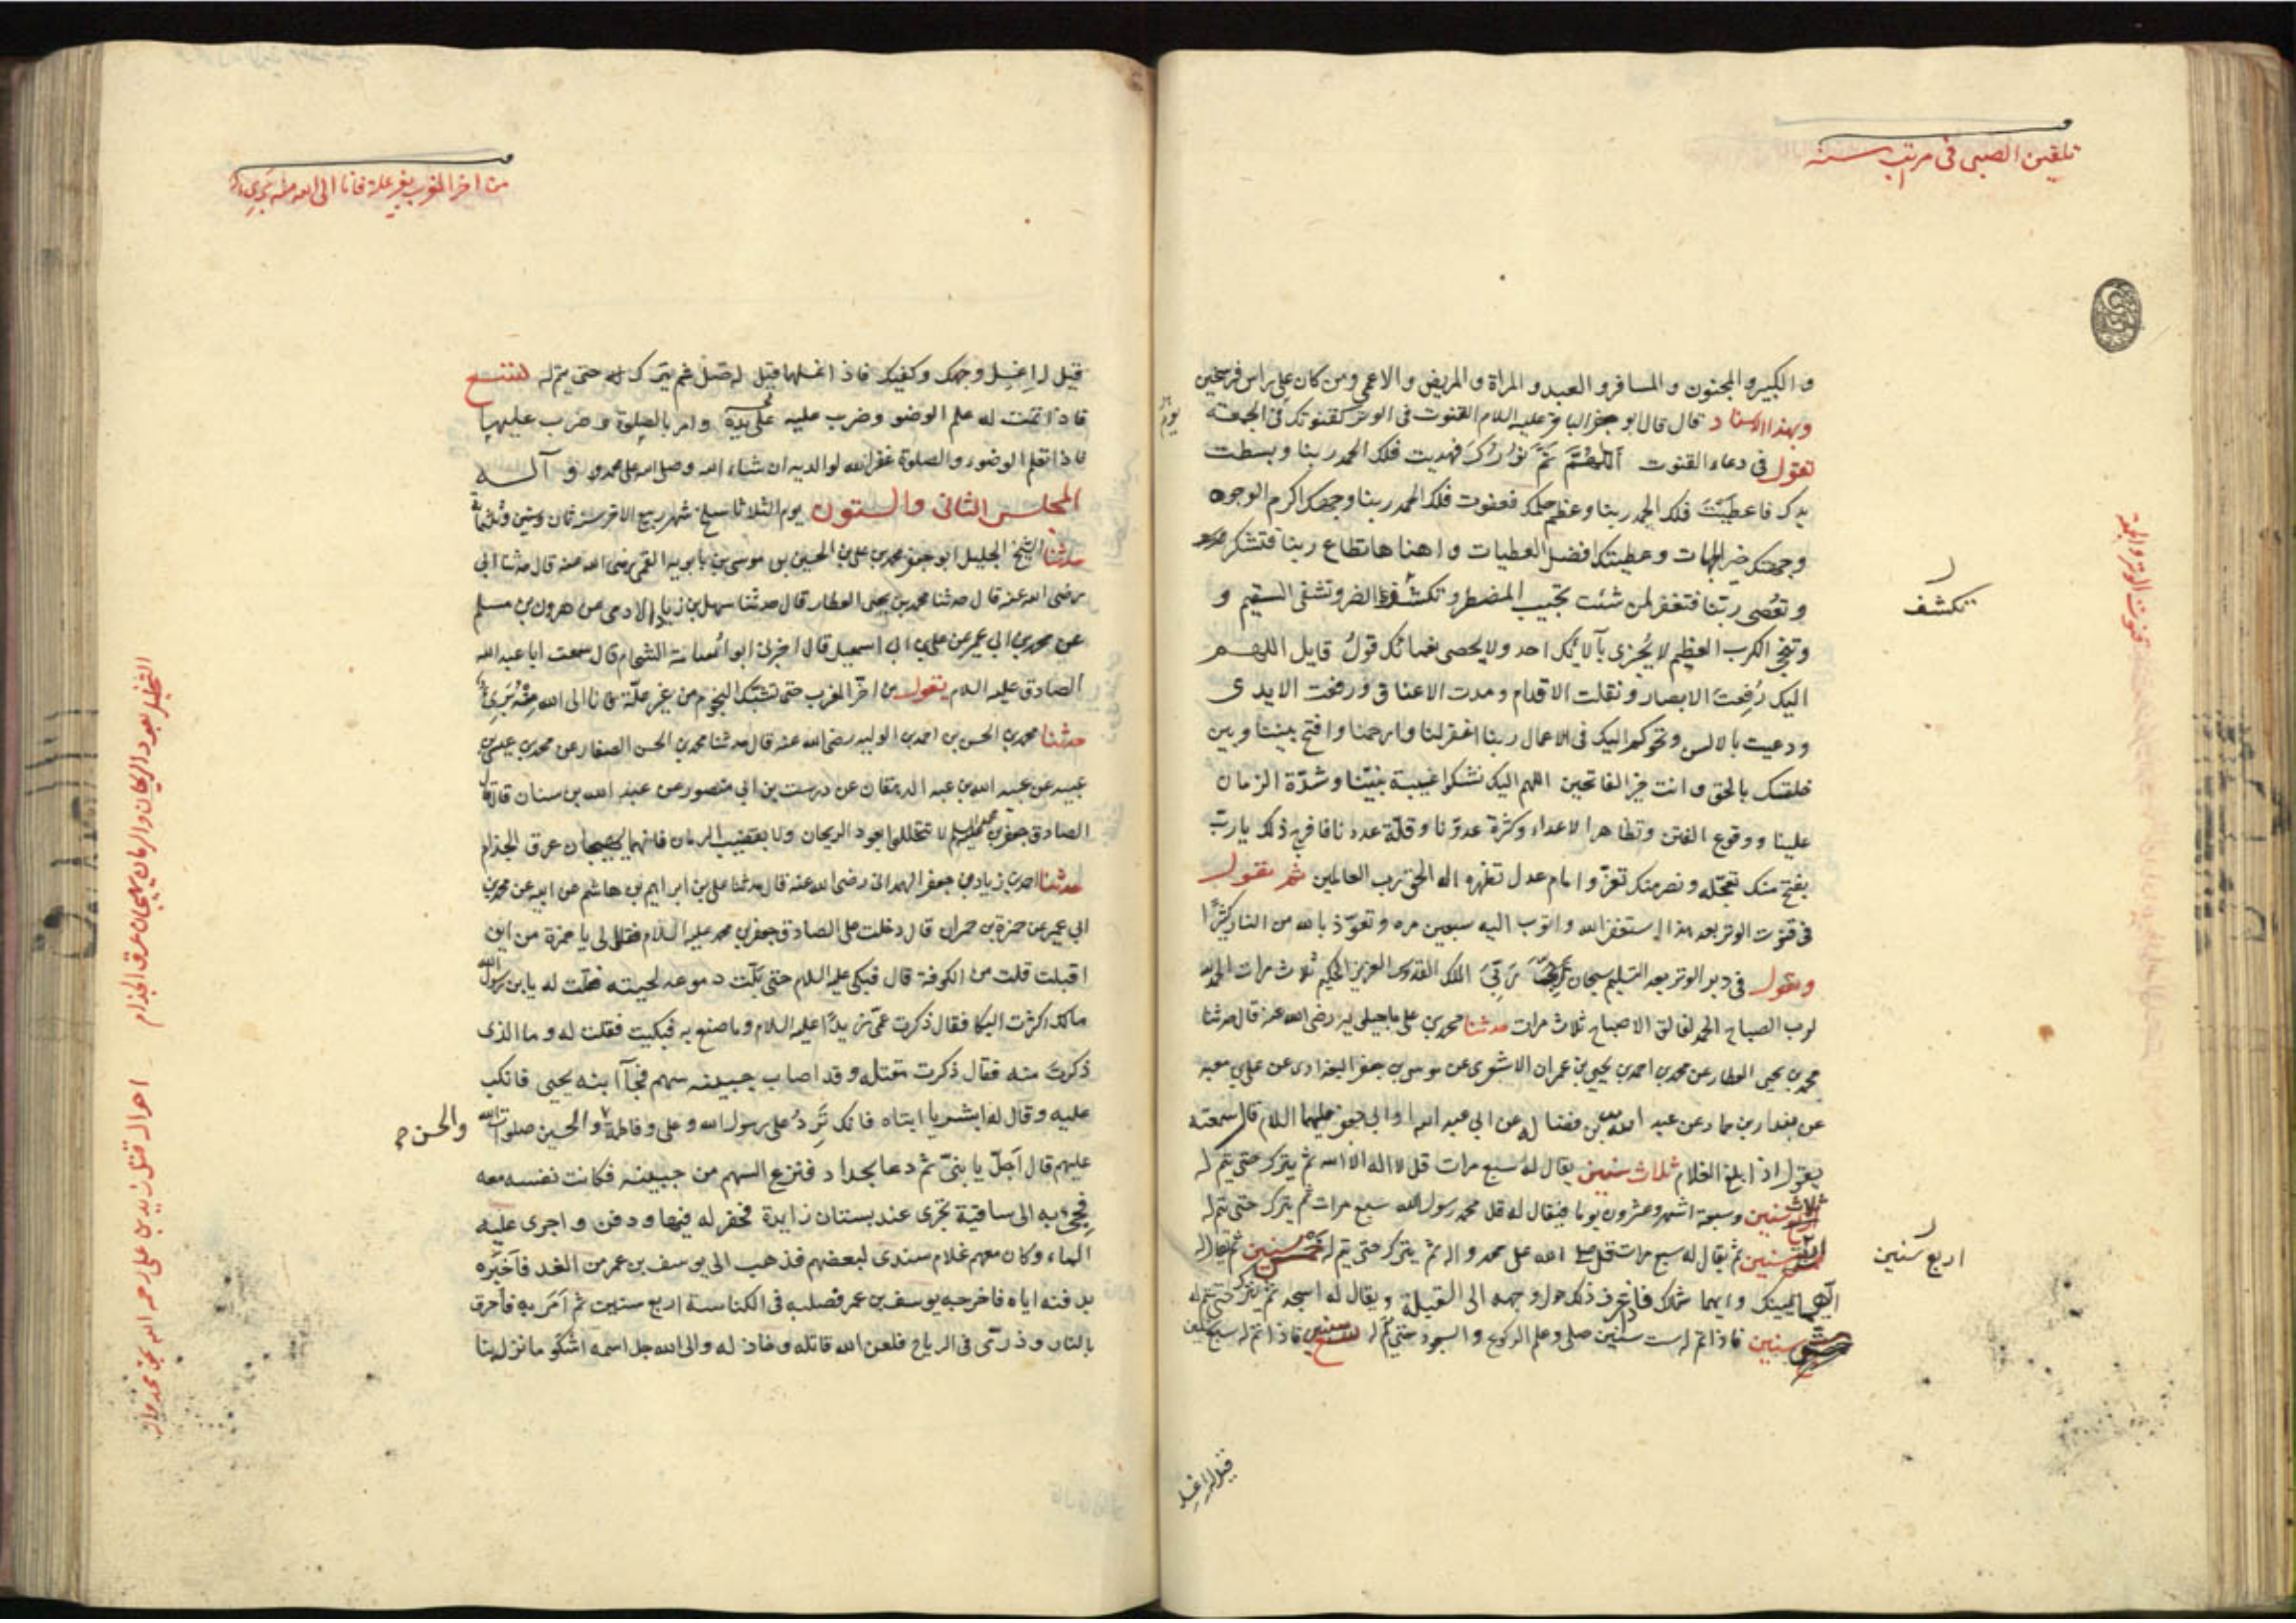 تلقين الصبى فى مراتب سنه
و الكبير و المجنون و المسافر و العبد و المراة و المريض و الاعمى و من كان على راس فرسخين
وبهذا الاسناد قال قال ابو جعفر الباقر عليه السلام القنوت فى الوتر كقنوتك فى الجمعة
يوم
تقول فى دعاء القنوت اللهم تم نورك فهديت فلك الحمد ربنا وبسطت
يدك فاعطيت فلك الحمد ربنا وعظم حلمك فعفوت فلك الحمد ربنا وجهك اكرم الوجوه
وجهتك خير الجهات وعطيتك افضل العطيات و اهنا ها تطاع ربنا فتشكر
و تعصى ربنا فتغفر لمن شئت تجيب المضطر و تكشف الضر وتشفى السقيم و
تكشف
وتنجى الكرب العظيم لا يجزى بآلائك احد ولا يحصى نعمائك قول قايل اللهم
اليك رفعت الابصار و نقلت الاقدام و مدت الاعناق و رفعت الايدى
ودعيت بالالسن وتحوكم اليك فى الاعمال ربنا اغفر لنا وارحمنا وافتح بيننا وبين
خلقك بالحق وانت خير الفاتحين اللهم اليك نشكوا غيبة نبينا وشدة الزمان
علينا و وقوع الفتن و تظاهر الاعداء وكثرة عدونا وقلة عددنا فافرج ذلك يارب
بفتح منك تعجله ونصر منك تعزه وامام عدل تظهره اله الحق رب العالمين ثم تقول
فى قنوت الوتر بعد هذا استغفر الله و اتوب اليه سبعين مره وتعوذ بالله من النار كثيرا
وتقول فى دبر الوتر بعد التسليم سبحان ربى الملك القدوس العزيز الحكيم ثلاث مرات الحمد
لرب الصباح الحمد لفالق الاصباح ثلاث مرات حدثنا محمد بن على ماجيلويه رضى الله عنه قال حدثنا
محمد بن يحيى العطار عن محمد بن احمد بن يحيى بن عمران الاشعرى عن موسى بن جعفر البغدادى عن على بن معبد
عن بندار بن حماد عن عبد الله بن فضاله عن ابى عبد الله او ابى جعفر عليهما السلام قال سمعته
يقول اذا بلغ الغلام ثلاث سنين يقال له سبع مرات قل لا اله الا الله ثم يترك حتى يتم له
ثلاث سنين وسبعة اشهر وعشرون يوما فيقال له قل محمد رسول الله سبع مرات ثم يترك حتى يتم له
سنين ثم يقال له سبع مرات قل صلى الله على محمد و اله ثم يترك حتى يتم له خمس سنين ثم يقال له
اربع سنين
ايهما يمينك وايهما شمالك فاذا عرف ذلك حول وجهه الى القبلة ويقال له اسجد ثم يترك حتى يتم له
سنين فاذا تم له ست سنين صلى و علم الركوع و السجود حتى يتم له سبع سنين فاذا تم له سبع سنين
قيل له اغسل
قنوت الوتر والجمعة
من اخر المغرب بغير علة فانا الى الله منه برىء
قيل له اغسل وجهك وكفيك فاذا غسلهما قيل له صل ثم يترك حتى يتم له تسع
فاذا تمت له علم الوضو وضرب عليه وامر بالصلوة و ضرب عليها
فاذا تعلم الوضوء و الصلوة غفر الله لوالديه ان شاء الله وصلى الله على محمد و آله
المجلس الثانى والستون يوم الثلاثا سلخ شهر ربيع الاخر سنة ثمان وستين وثلثمائة
حدثنا الشيخ الجليل ابو جعفر محمد بن على بن الحسين بن موسى بن بابويه القمى رضى الله عنه قال حدثنا ابى
رضى الله عنه قال حدثنا محمد بن يحيى العطار قال حدثنا سهل بن زياد الادمى عن هرون بن مسلم
عن محمد بن ابى عمير عن على بن اسمعيل قال اخبرنى ابو اسامة الشحام قال سمعت ابا عبد الله
الصادق عليه السلام يقول من اخر المغرب حتى تشتبك النجوم من غير علة فانا الى الله منه برىء
حدثنا محمد بن الحسن بن احمد بن الوليد رضى الله عنه قال حدثنا محمد بن الحسن الصفار عن محمد بن عيسى بن
عبيد عن عبيد الله بن عبد الله الدهقان عن درست بن ابى منصور عن عبد الله بن سنان قال قال
الصادق جعفر بن محمد عليه السلام لا تتخللوا بعود الريحان ولا بقضيب الرمان فانهما يهيجان عرق الجذام
حدثنا احمد بن زياد بن جعفر الهمدانى رضى الله عنه قال حدثنا على بن ابراهيم بن هاشم عن ابيه عن محمد بن
ابى عمير عن حمزة بن حمران قال دخلت على الصادق جعفر بن محمد عليه السلام فقال لى يا حمزة من اين
اقبلت قلت من الكوفة قال فبكى عليه السلام حتى بلت دموعه لحيته فقلت له يا بن رسول الله
مالك اكثرت البكا فقال ذكرت عمى زيدا عليه السلام وما صنع به فبكيت فقلت له و ما الذى
ذكرت منه فقال ذكرت مقتله و قد اصاب جبينه سهم فجآ ابنه يحيى فانكب
عليه وقال له ابشر يا ابتاه فانك ترد على رسول الله و على و فاطمة و الحسين صلوات الله
والحسن
عليهم قال اجل يا بنى ثم دعا بحداد فنزع السهم من جبينه فكانت نفسه معه
فجىء به الى ساقية تجرى عند بستان زايدة فحفر له فيها و دفن و اجرى عليه
الماء و كان معهم غلام سندى لبعضهم فذهب الى يوسف بن عمر من الغد فاخبره
بدفنه اياه فاخرجه يوسف بن عمر فصلبه فى الكناسة اربع سنين ثم امر به فاحرق
بالنار و ذرى فى الرياح فلعن الله قاتله و خاذله والى الله جل اسمه اشكو ما نزل بنا
التخليل بعود الريحان والرمان يهيجان عرق الجذام
احوال قتل زيد بن على رحمه الله